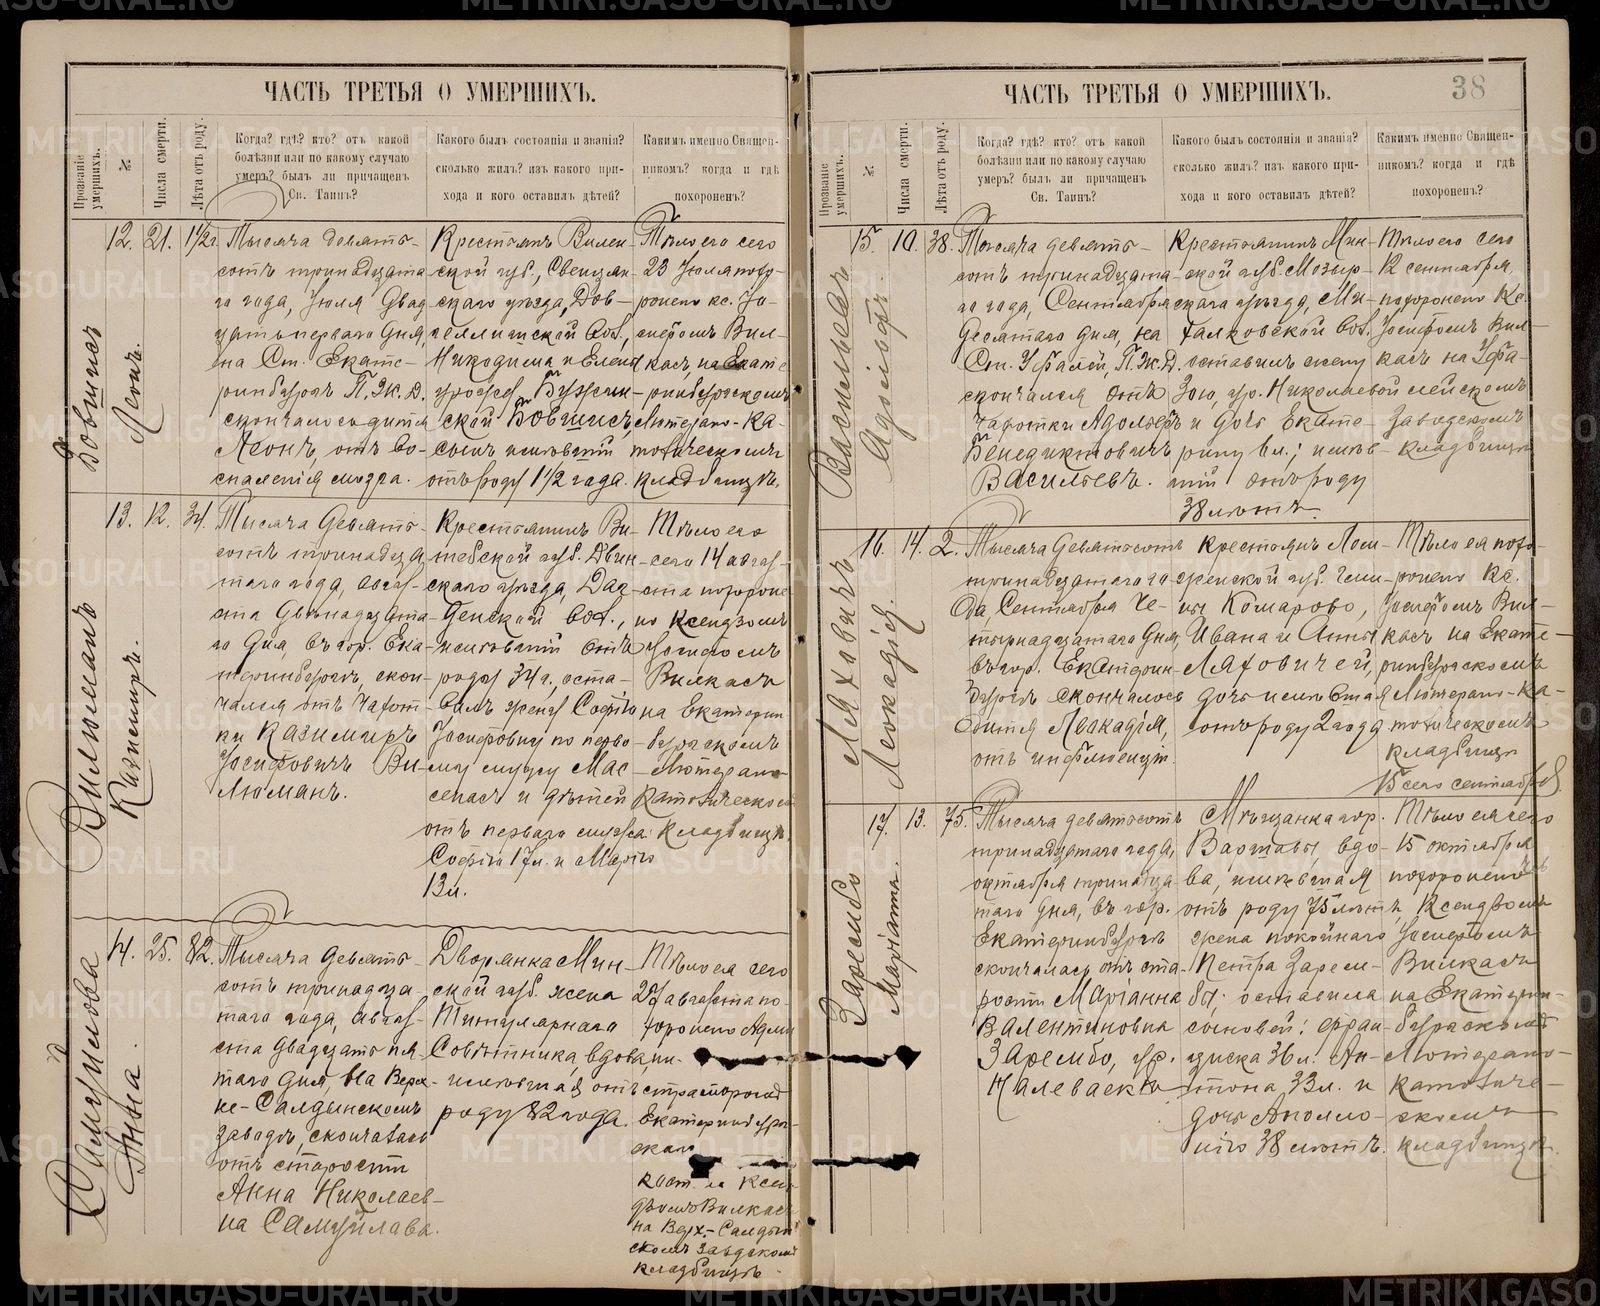 ЧАСТЬ ТРЕТЬЯ О УМЕРШИХЪ.
Прозваніе умершихъ.
№.
Числа смерти.
Лѣта отъ роду.
Когда? гдѣ? кто? отъ какой
болѣзни или по какому случаю
умеръ? былъ ли причащенъ
Св. Таинъ?
Какого былъ состоянія и званія?
сколько жилъ? изъ какого при-
хода и кого оставилъ дѣтей?
Какимъ именно Священ-
никомъ? когда и гдѣ
похороненъ?
Бовшисъ
Леонъ.
12. 21. 1½ г.
Тысяча девять-
сотъ тринадцата-
го года, Іюля двад-
цать перваго дня,
на Ст. Екате-
ринбургъ П. Ж. Д.
скончалось дитя
Леонъ, отъ во-
спаленія мозга.
Крестьянъ Вилен-
ской губ., Свенцян-
скаго уѣзда,
вол.,
Никодима и Елены
урожд.
ской Бовшисъ,
сынъ имѣвшій
отъ роду 1½ года.
Тѣло его сего
23 Іюля похо-
ронено кс. Іо-
сифомъ Вил-
касъ, на Екате-
ринбургскомъ
Лютерано-Ка-
толическомъ
кладбищѣ.
Вилюманъ
Казимиръ.
13. 12. 34.
Тысяча девять-
сотъ тринадца-
таго года, авгус-
та двѣнадцата-
го дня, въ гор. Ека-
теринбургѣ, скон-
чался отъ чахот-
ки Казимиръ
Іосифовичъ Ви-
люманъ.
Крестьянинъ Ви-
тебской губ. Двин-
скаго уѣзда,
вол.,
имѣвшій отъ
роду 34 г., оста-
вилъ жену Софію
Іосифовну по перво-
му мужу
и дѣтей
отъ перваго мужа:
Софію 17 л. и Марію
13 л.
Тѣло его
сего 14 авгус-
та похороне-
но Ксендзомъ
Іосифомъ
Вилкасъ
на Екатерин-
бургскомъ
Лютерано
Католическомъ
кладбищѣ.
Самуйлова
Анна.
14. 25. 82.
Тысяча девять-
сотъ тринадца-
таго года, авгус-
та двадцать пя-
таго дня, на Верх-
не-Салдинскомъ
заводѣ, скончалась
отъ старости
Анна Николаев-
на Самуйлова.
Дворянка Мин-
ской губ. жена
Титулярнаго
Совѣтника, вдова,
имѣвшая отъ
роду 82 года.
Тѣло ея сего
27 августа по-
хоронено Адми-
ни-
страторомъ
Екатеринбург-
скаго
Ксен-
дзомъ Вилкасъ
на Верх.-Салдин-
скомъ Заводскомъ
кладбищѣ.
ЧАСТЬ ТРЕТЬЯ О УМЕРШИХЪ.
38
Прозваніе умершихъ.
№.
Числа смерти.
Лѣта отъ роду.
Когда? гдѣ? кто? отъ какой
болѣзни или по какому случаю
умеръ? былъ ли причащенъ
Св. Таинъ?
Какого былъ состоянія и званія?
сколько жилъ? изъ какого при-
хода и кого оставилъ дѣтей?
Какимъ именно Священ-
никомъ? когда и гдѣ
похороненъ?
Васильевъ
Адольфъ.
15. 10. 38.
Тысяча девять-
сотъ тринадцата-
го года, Сентября
десятаго дня, на
Ст. Уфалей, П. Ж. Д.
скончался отъ
чахотки Адольфъ
Бенедиктовичъ
Васильевъ.
Крестьянинъ Мин-
ской губ. Мозыр-
скаго уѣзда, Ми-
халковской вол.
оставилъ жену
Зою, ур. Николаевой
и дочь Екате-
рину 6 л.; имѣв-
шій отъ роду
38 лѣтъ.
Тѣло его сего
12 сентября
похоронено Кс.
Іосифомъ Вил-
касъ на Уфа-
лейскомъ
Заводскомъ
кладбищѣ
Ляховичъ
Леокадія.
16. 14. 2.
Тысяча девятьсотъ
тринадцатаго го-
да Сентября че-
тырнадцатаго дня,
въ гор. Екатерин-
бургѣ скончалось
дитя Леокадія,
отъ инфлюенціи.
Крестьянъ Лом-
женской губ. гми-
ны Комарово,
Ивана и Анны
Ляховичей,
дочь имѣвшая
отъ роду 2 года
Тѣло ея похо-
ронено Кс.
Іосифомъ Вил-
касъ на Екате-
ринбургскомъ
Лютерано-Ка-
толическомъ
кладбищѣ
15 сего сентября.
Зарембо
Маріанна.
17. 13. 75.
Тысяча девятьсотъ
тринадцатаго года,
октября тринадца-
таго дня, въ гор.
Екатеринбургѣ
скончалась отъ ста-
рости Маріанна
Валентиновна
Зарембо, ур.
Мѣщанка гор.
Варшавы, вдо-
ва, имѣвшая
отъ роду 75 лѣтъ,
жена покойнаго
Петра Зарем-
бы; оставила
сыновей: Фран-
циска 36 л. Ан-
тона, 33 л. и
дочь Аполло-
нію 38 лѣтъ.
Тѣло ея сего
15 октября
похоронено
Ксендзомъ
Іосифомъ
Вилкасъ
на Екатерин-
бургскомъ
Лютерано-
католиче-
скомъ
кладбищѣ.
METRIKI.GASO-URAL.RU